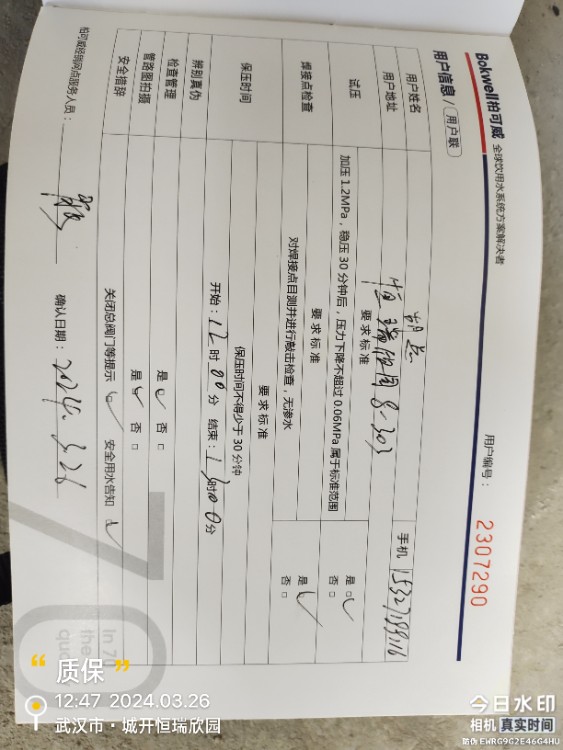 Bokwell柏可威 全球饮用水系统方案解决者
用户信息 / 用户联
用户编号： 2307290
用户姓名
手机 15327199116
用户地址 恒瑞欣园8-303
试压
要求标准
加压 1.2MPa，稳压 30 分钟后，压力下降不超过 0.06MPa 属于标准范围
是 □ ✓
否 □
焊接点检查
要求标准
对焊接点目测并进行敲击检查，无渗水
是 □ ✓
否 □
保压时间
要求标准
保压时间不得少于 30 分钟
开始：12 时 00 分 结束：13 时 00 分
辨别真伪
检查管理
是 □ ✓ 否 □
管路图拍摄
是 □ ✓ 否 □
安全措辞
关闭总阀门等提示 □ ✓ 安全用水告知 □ ✓
柏可威经销网点服务人员：
确认日期：2024.3.26
70
In 70
the
qua
“ 质保 ”
12:47 2024.03.26
武汉市·城开恒瑞欣园
今日水印
相机 真实时间
防伪 EWRG9G2E46G4HU